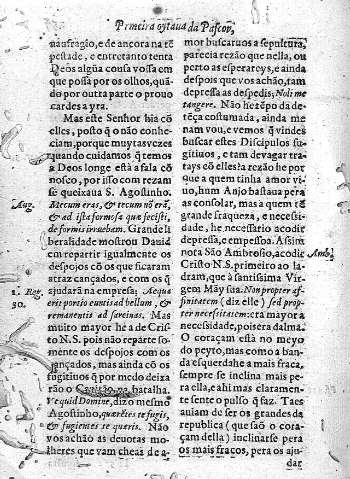 Primeira oytaua da Pascoa,
naufragio, e de ancora na tẽ
pestade, e entretanto tenta
Deos algũa cousa vossa em
que possa por os olhos, quã
do por outra parte o prouo
cardes a yra.
Mas este Senhor hia cõ
elles, posto q̃ o não conhe-
ciam, porque muytas vezes
quando cuidamos q̃ temos
a Deos longe está a fala cõ
nosco, por isso com rezam
se queixaua S. Agostinho.
Aug.
Mecum eras, & tecum nõ erã,
& ad ista formosa quæ fecisti,
deformis irruebam. Grande li
beralidade mostrou Dauid
em repartir igualmente os
despojos cõ os que ficaram
atraz cançados, e com os q̃
ajudarã na empresa. Æqua
1. Reg.
30.
erit portio euntis ad bellum, &
remanentis ad sarcinas. Mas
muito mayor he a de Chris-
to N.S. pois não reparte so-
mente os despojos com os
cançados, mas ainda cõ os
fugitiuos q̃ por medo deixa
rão o Capitão na batalha.
Ve quid Domine, diz o mesmo
Agostinho, quærētes te fugis,
& fugientes te quæris. Não
vos achão as deuotas mo-
lheres que vam cheas de a-
mor buscaruos a sepultura,
parecia rezão que nella, ou
perto as esperareys, e ainda
depois que vos achão, tam
depressa as despedis; Noli me
tangere. Não he tẽpo da de-
tẽça costumada, ainda me
nam vou, e vemos q̃ vindes
buscar estes Discipulos fu-
gitiuos, e tam deuagar tra-
tays cõ elles! a rezão he por
que a quem tinha amor vi-
uo, hum Anjo bastaua pera
as consolar, mas a quem tẽ
grande fraqueza, e necessi-
dade, he necessario acodir
depressa, e empessoa. Assim
nota São Ambrosio, acodir
Amb.
Cristo N.S. primeiro ao la-
dram, que â santissima Virgem
May sua. Non propter af-
finitatem (diz elle) sed prop-
ter necessitatem: era mayor a
necessidade, poisera dalma.
O coraçam está no meyo
do peyto, mas como a ban-
da esquerdahe a mais fraca,
sempre se inclina mais pe-
ra ella, e ahi mas claramen-
te sente o pulso q̃ faz. Taes
auiam de ser os grandes da
republica (que saõ o cora-
çam della) inclinarse pera
os mais fracos, pera os aju-
dar